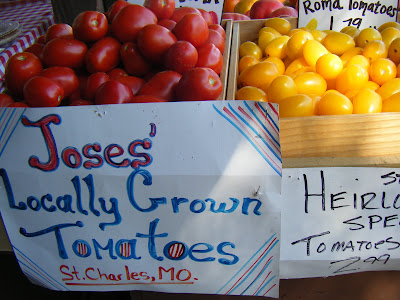 Roma
1.79
Joses'
Locally Grown
Tomatoes
St. Charles, MO.
HEIRLO
SPE
TOMATOES
2.99